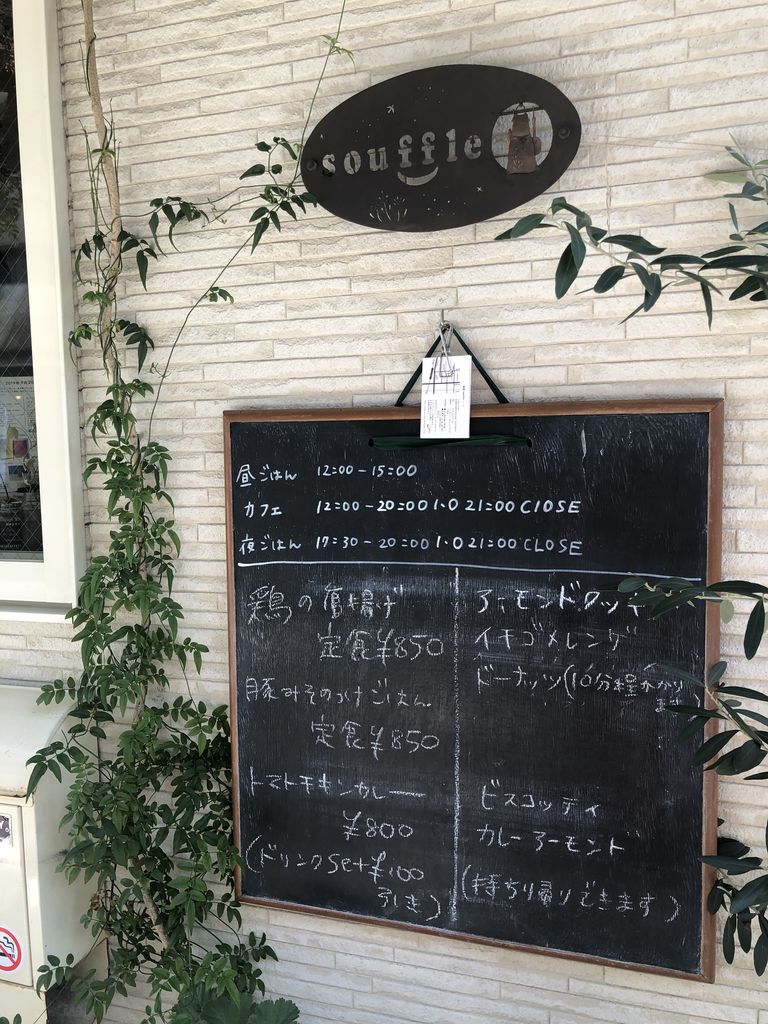 souffle
昼ごはん 12:00-15:00
カフェ 12:00-20:00 L.O 21:00 CLOSE
夜ごはん 17:30-20:00 L.O 21:00 CLOSE
鶏の竜揚げ
定食¥850
豚みそのっけごはん
定食¥850
トマトチキンカレー
¥800
(ドリンクset¥100
引き)
アーモンドクッキ
イチゴメレンゲ
ドーナッツ(10分程かかり
ま
ビスコッティ
カレーアーモンド
(持ち帰りできます)